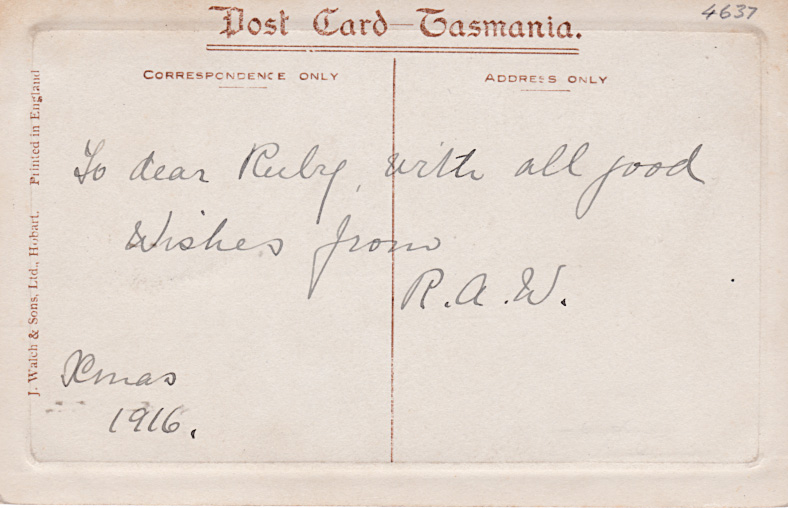 Post Card—Tasmania.
4637
CORRESPONDENCE ONLY
ADDRESS ONLY
To dear Ruby, with all good
Wishes from
R.A.W.
Xmas
1916.
J. Walch & Sons, Ltd., Hobart. Printed in England